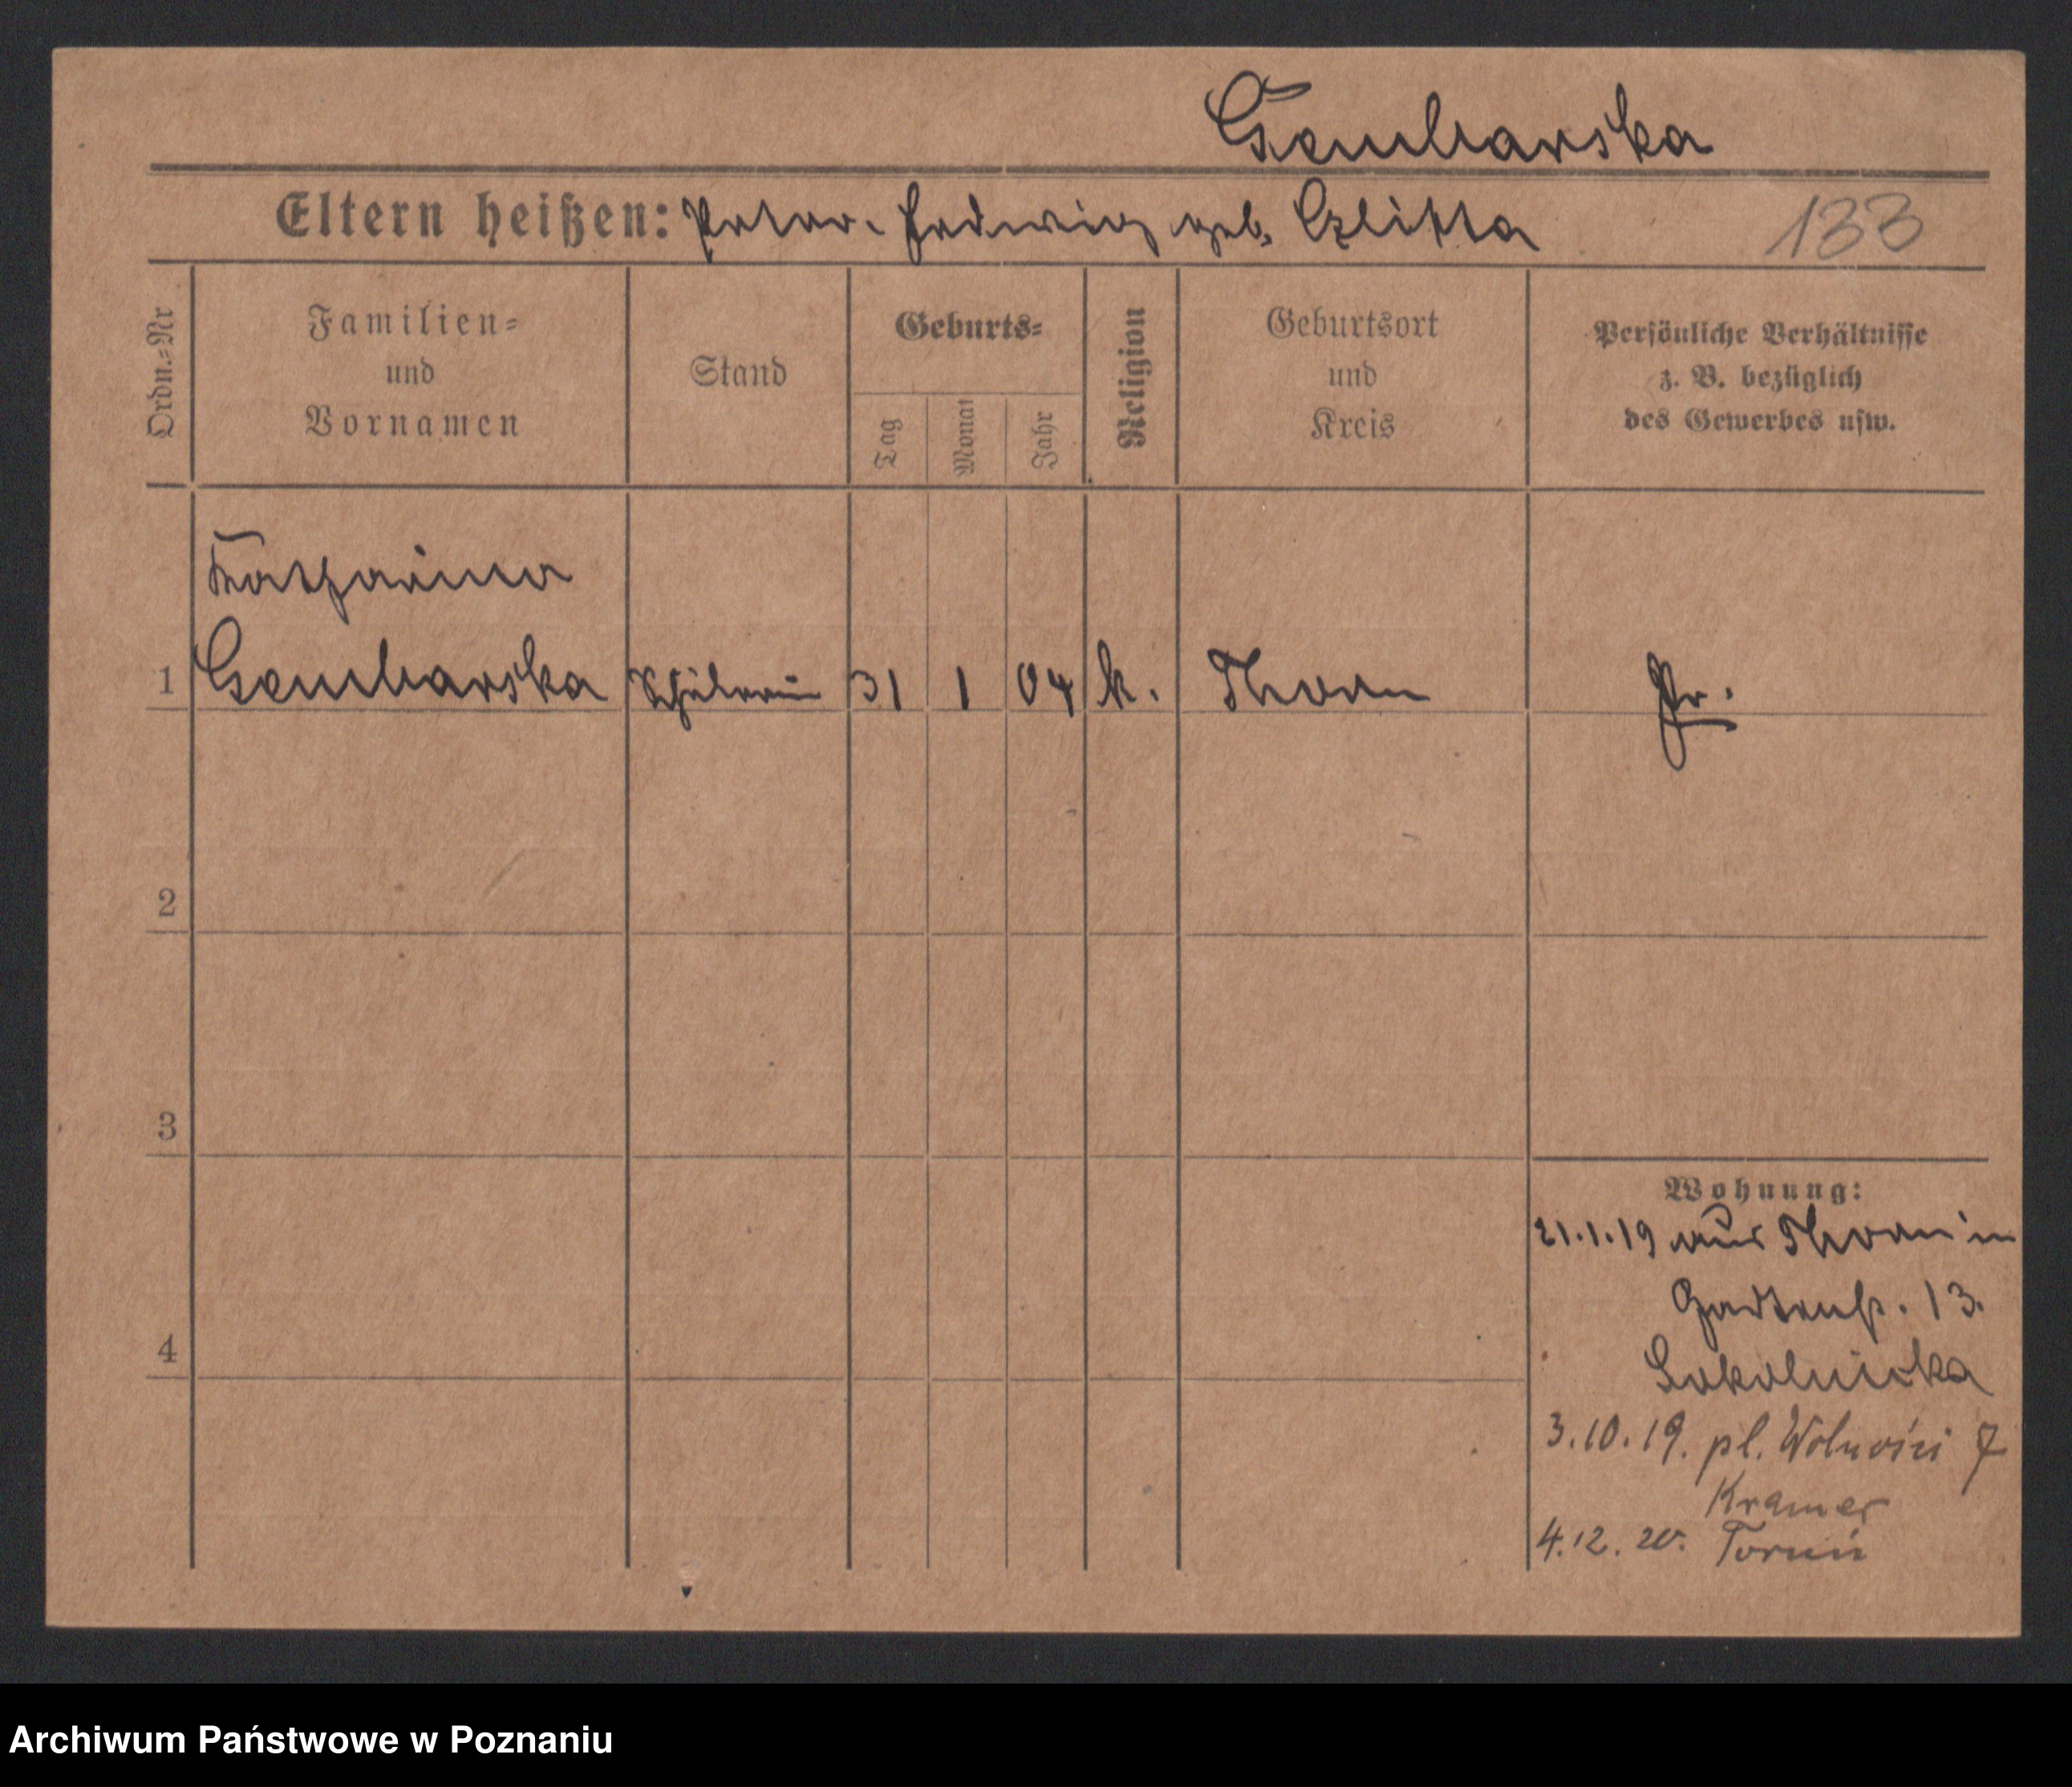 Gembarska
Eltern heißen: Peter. Hedwig geb. Czlitta
133
Ordn.=Nr
Familien=
und
Vornamen
Stand
Geburts=
Tag
Monat
Jahr
Religion
Geburtsort
und
Kreis
Persönliche Verhältnisse
z. B. bezüglich
des Gewerbes usw.
Katharina
1 Gembarska Schülerin 31 1 04 k. Thorn Pr.
2
3
4
Wohnung:
21.1.19 aus Thorn in
13.
Sokolnicka
3.10.19. pl. Wolności 7
Kramer
4.12.20. Toruń
Archiwum Państwowe w Poznaniu